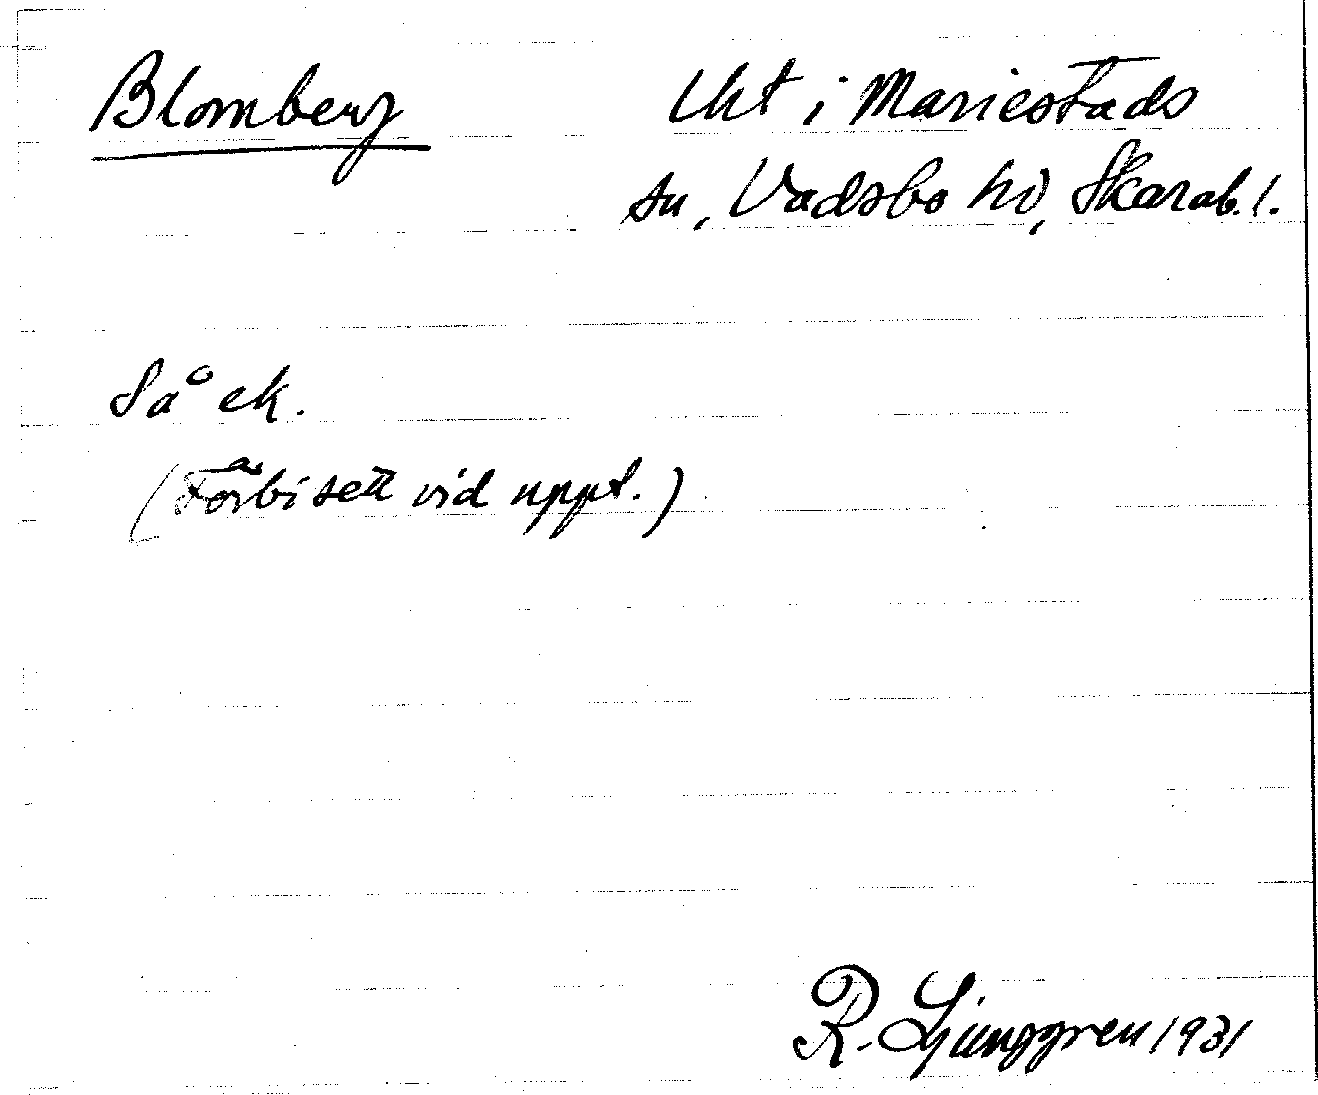 Blomberg
Lht i Mariestads
sn, Vadsbo hd, Skarab. l.
Så ek.
(Förbisett vid uppt.)
R. Ljunggren 1931